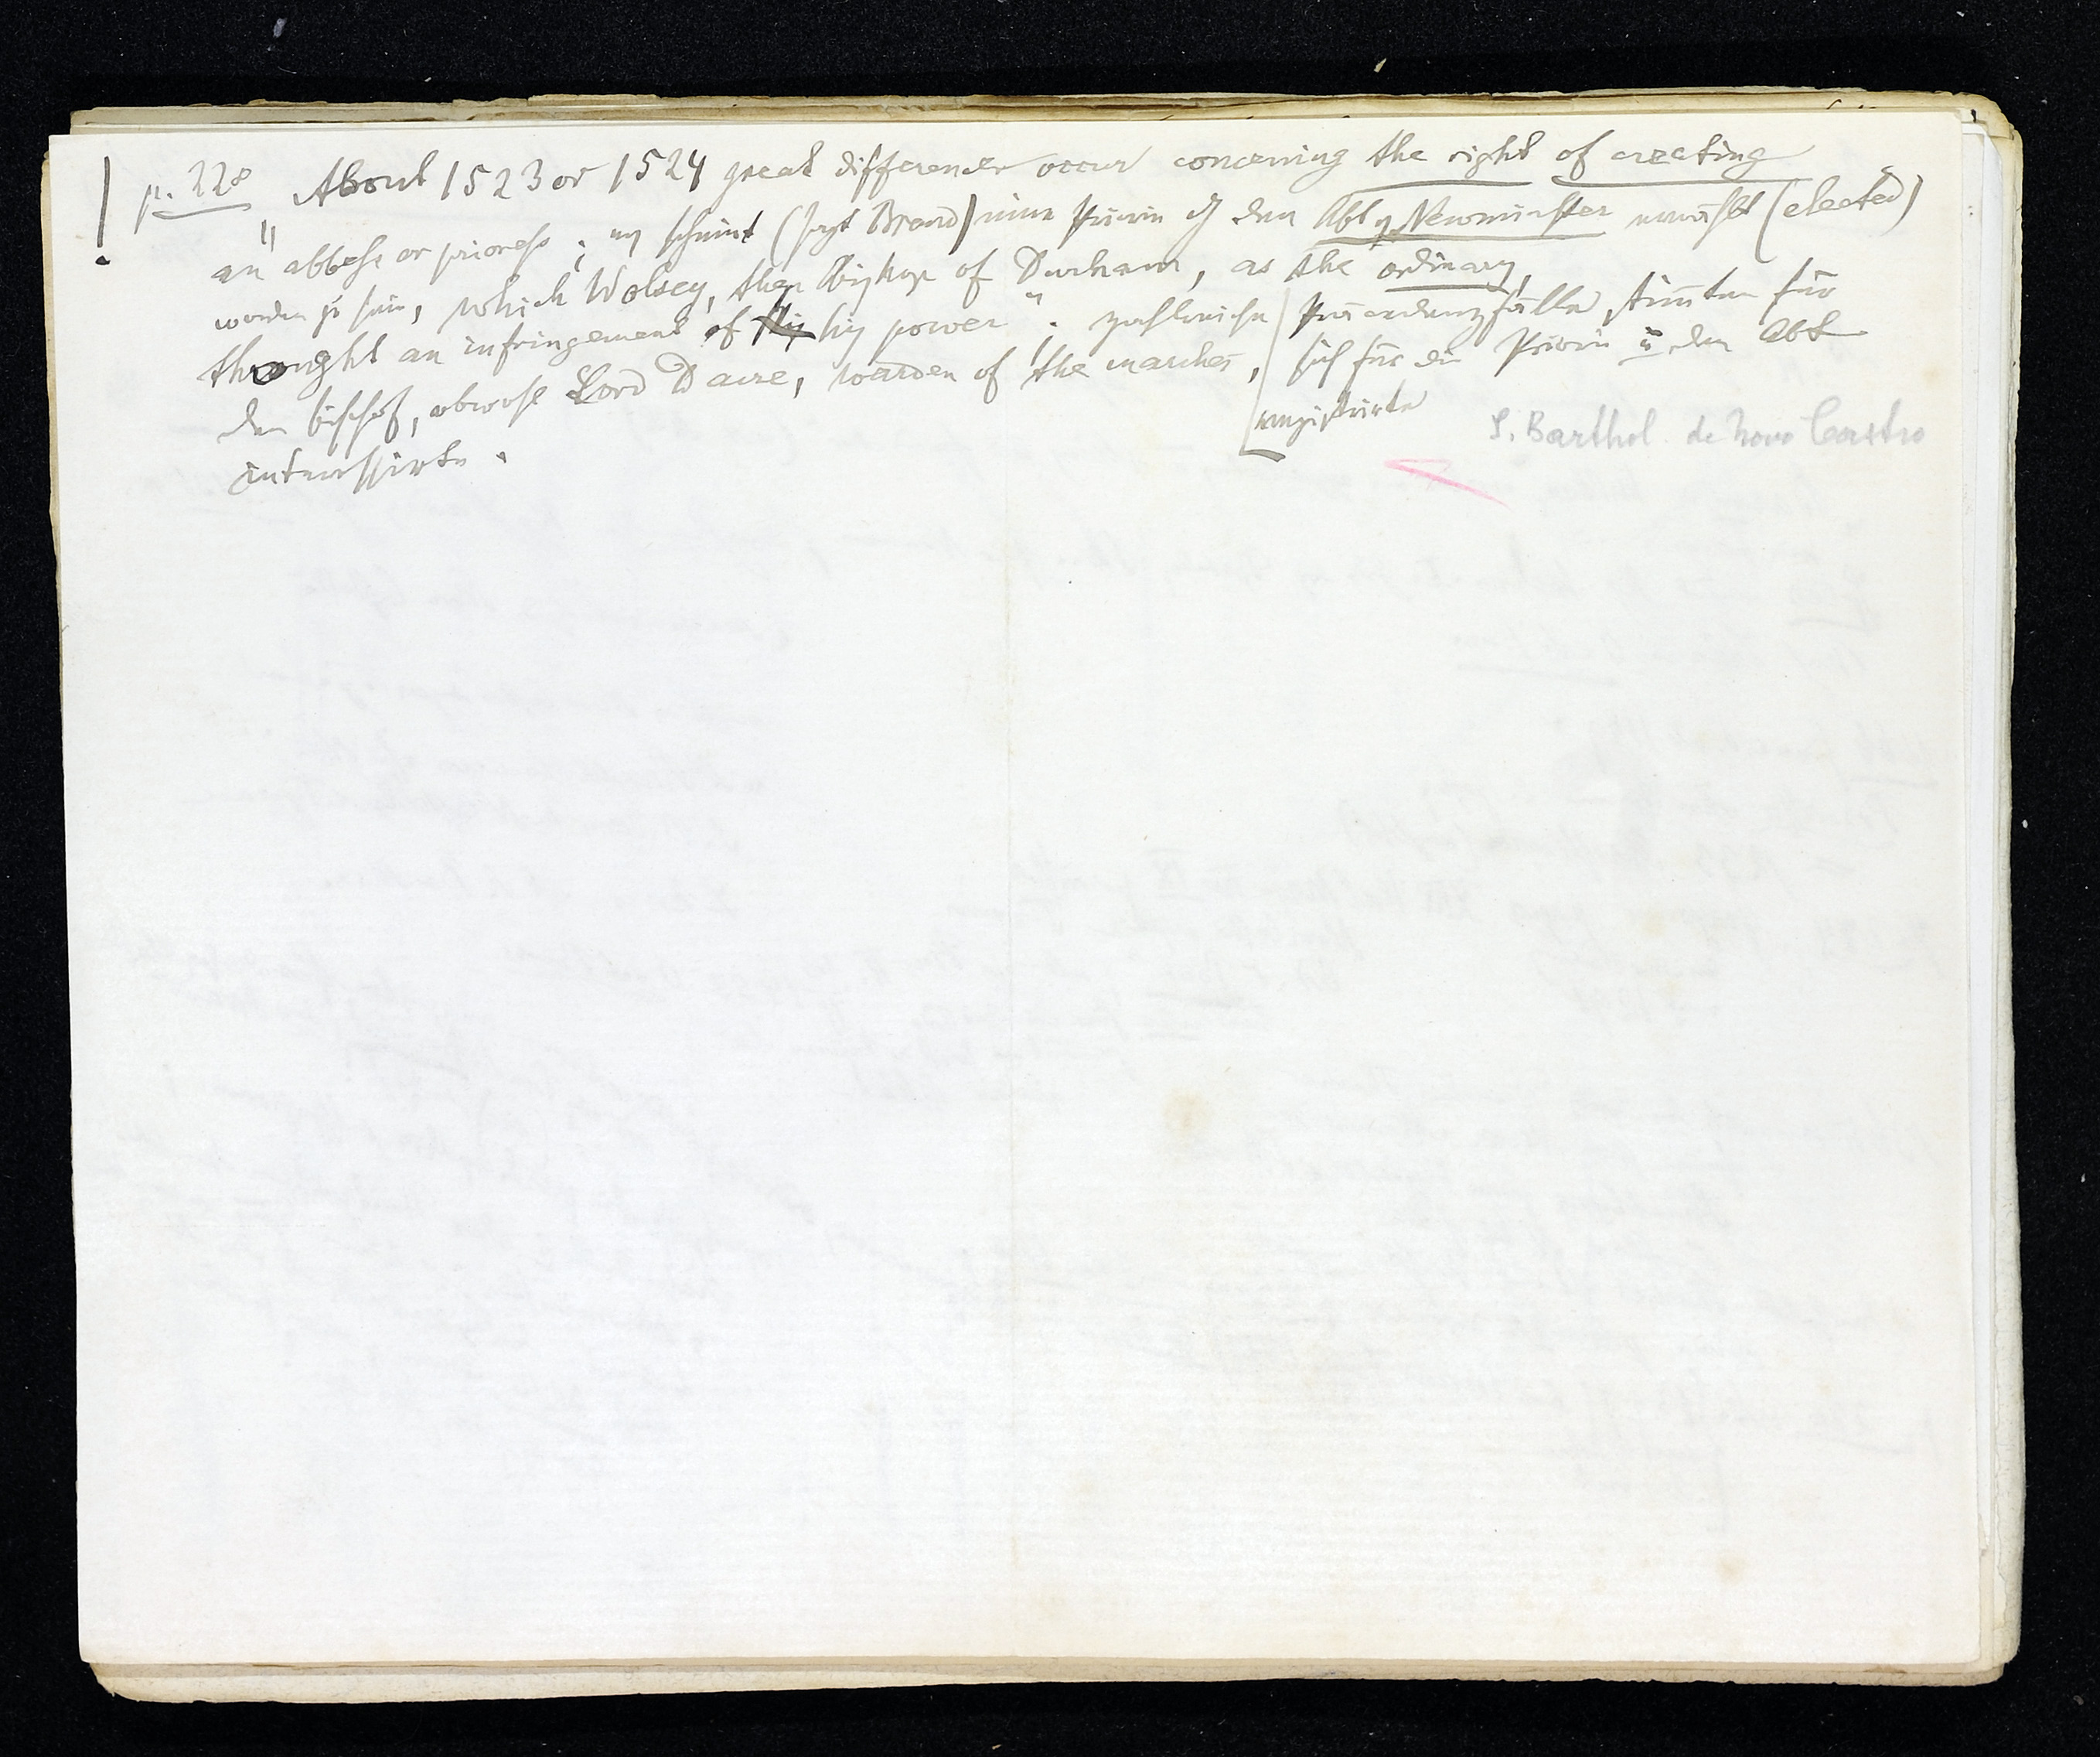 ! p. 228 About 1523 or 1524 great differences occur concerning the right of creating
" an abbess or prioress; es scheint (sagt Brand) eine Priorin v. dem Abt v. Newminster erwählt (elected)
worden zu sein, which Wolsey, then Bishop of Durham, as the ordinary,
thought an infringement of his his power". zahlreiche Präcedenzfälle stimten für
den bischof, obwohl Lord Dacre, warden of the marches, sich für die Priorin u den Abt
interessirte.
registrirte
S. Barthol. de Novo Castro